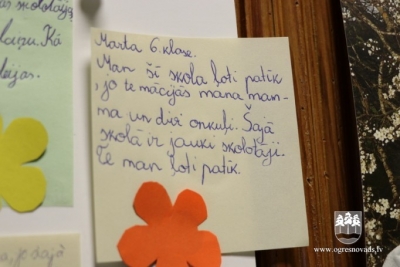 Marta 6. klase.
Man šī skola ļoti patīk
, jo te mācījās mana mam-
ma un divi onkuļi. Šajā
skolā ir jauki skolotāji.
Te man ļoti patīk.
www.ogresnovads.lv